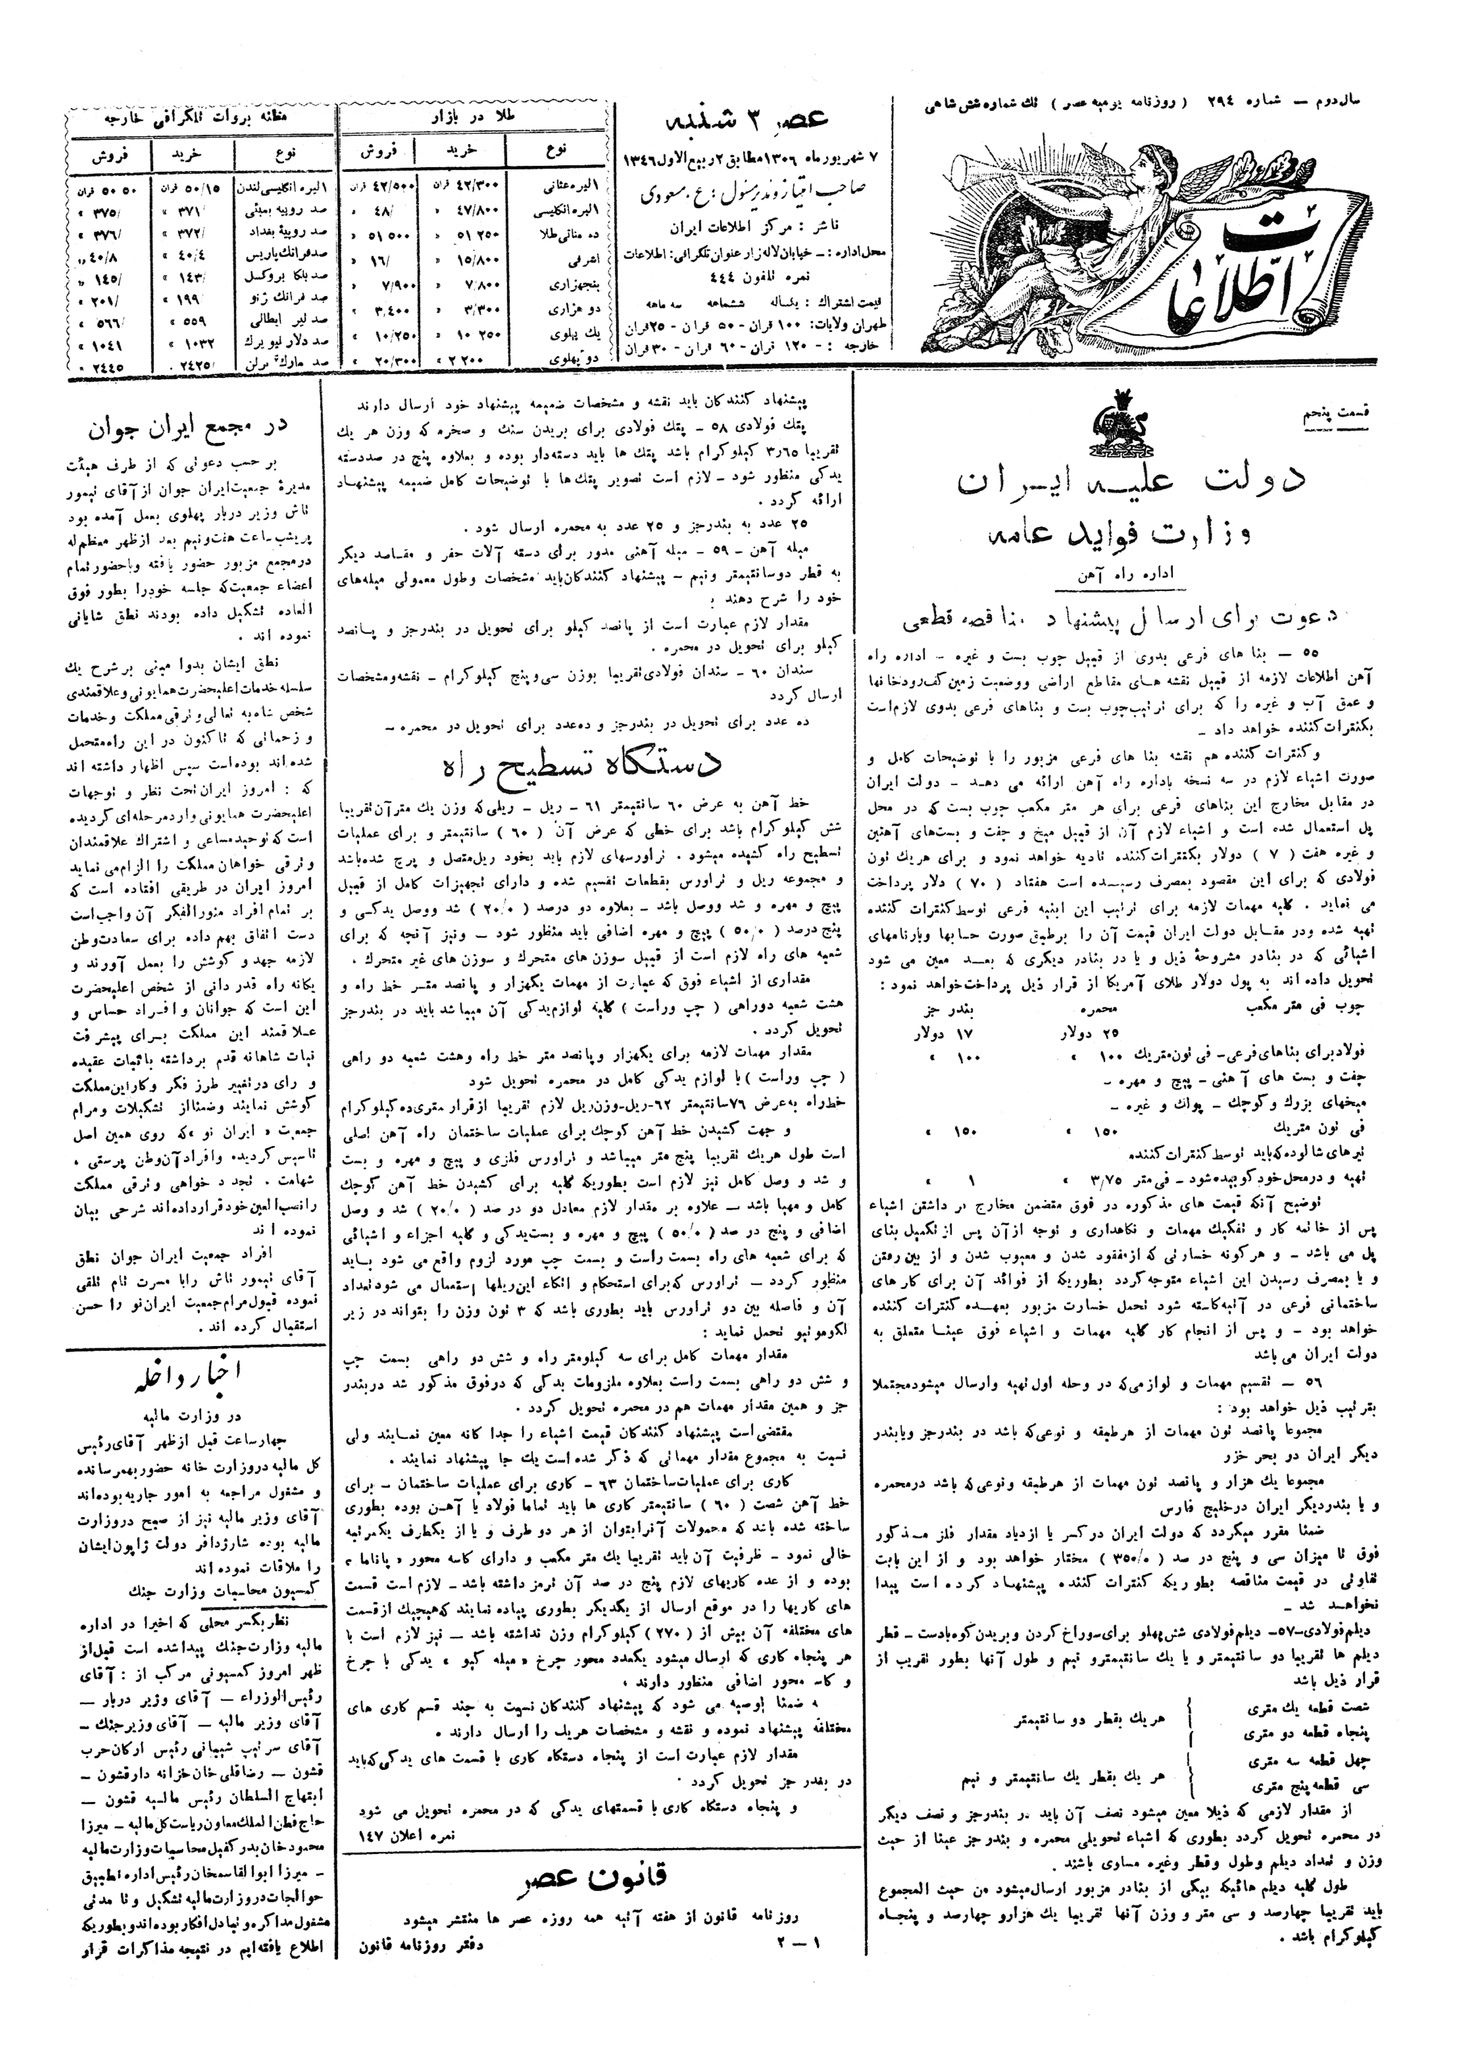 سال دوم – شماره ۲۹۴ (روزنامه یومیه عصر) تك شماره شش شاهی
اطلاعات
عصر ۳ شنبه
۷ شهریور ماه ۱۳۰٦ مطابق ۲ ربیع الاول ۱۳٤٦
صاحب امتیاز و مدیر مسئول : ع . مسعودی
ناشر : مرکز اطلاعات ایران
محل اداره : – خیابان لاله زار عنوان تلگرافی : اطلاعات
نمره تلفون ٤٤٤
قیمت اشتراك : یکساله ششماهه سه ماهه
طهران ولایات: ۱۰۰ قران - ۵۰ قران - ۲۵ قران
خارجه : – ۱۲۰ قران – ٦۰ قران – ۳۰ قران
طلا در بازار
نوع خرید فروش
۱ لیره عثمانی ٤۲/۳۰۰ قران ٤۲/۵۰۰ قران
۱ لیره انگلیسی ٤۷/۸۰۰ » ٤۸/ »
ده مثانی طلا ۵۱ ۲۵۰ » ۵۱ ۵۰۰ »
اشرفی ۱۵/۸۰۰ » ۱٦/ »
پنجهزاری ۷/۸۰۰ » ۷/۹۰۰ »
دو هزاری ۳/۳۰۰ » ۳/٤۰۰ »
یك پهلوی ۱۰ ۲۵۰ » ۱۰/۲۵۰ »
دو پهلوی ۲ ۲۰۰ » ۲۰/۳۰۰ »
مظنه بروات تلگرافی خارجه
نوع خرید فروش
۱ لیره انگلیسی لندن ۵۰/۱۵ قران ۵۰ ۵۰ قران
صد روپیه بمبئی ۳۷۱/ » ۳۷۵/ »
صد روپیۀ بغداد ۳۷۲/ » ۳۷٦/ »
صد فرانك پاریس ٤۰/٤ » ٤۰/۸ »
صد بلکا بروکسل ۱٤۳/ » ۱٤۵/ »
صد فرانك ژنو ۱۹۹/ » ۲۰۱/ »
صد لیر ایطالی ۵۵۹ » ۵٦٦/ »
صد دلار نیویرك ۱۰۳۲ » ۱۰٤۱ »
صد مارك برلن ۲٤۲۵/ » ۲٤٤۵ »
قسمت پنجم
دولت علیه ایران
وزارت فواید عامه
اداره راه آهن
دعوت برای ارسال پیشنهاد مناقصه قطعی
۵۵ – بنا های فرعی بدوی از قبیل چوب بست و غیره – اداره راه
آهن اطلاعات لازمه از قبیل نقشه های مقاطع اراضی و وضعیت زمین کف رودخانها
و عمق آب و غیره را که برای ترتیب چوب بست و بناهای فرعی بدوی لازم است
بکنترات کننده خواهد داد –
و کنترات کننده هم نقشه بنا های فرعی مزبور را با توضیحات کامل و
صورت اشیاء لازم در سه نسخه باداره راه آهن ارائه می دهد – دولت ایران
در مقابل مخارج این بناهای فرعی برای هر متر مکعب چوب بست که در محل
پل استعمال شده است و اشیاء لازم آن از قبیل میخ و جفت و بست‌های آهنین
و غیره هفت ( ۷ ) دولار بکنترات کننده تادیه خواهد نمود و برای هر یك تون
فولادی که برای این مقصود بمصرف رسیده است هفتاد ( ۷۰ ) دلار پرداخت
می نماید . کلیه مهمات لازمه برای ترتیب این ابنیه فرعی توسط کنترات کننده
تهیه شده و در مقابل دولت ایران قیمت آن را برطبق صورت حسابها و بارنامهای
اشیائی که در بنادر مشروحۀ ذیل و یا در بنادر دیگری که بعد معین می شود
تحویل داده اند به پول دولار طلای آمریکا از قرار ذیل پرداخت خواهد نمود :
چوب فی متر مکعب محمره بندر جز
۲۵ دولار ۱۷ دولار
فولاد برای بناهای فرعی – فی تون متریك ۱۰۰ » ۱۰۰ »
جفت و بست های آهنی – پیچ و مهره –
میخهای بزرك و کوچك – پوان و غیره –
فی تون متریك ۱۵۰ » ۱۵۰ »
تیرهای شالوده که باید توسط کنترات کننده
تهیه و در محل خود کوبیده شود – فی متر ۳٫۷۵ » ۱ »
توضیح آنکه قیمت های مذکوره در فوق متضمن مخارج بر داشتن اشیاء
پس از خاتمه کار و تفکیك مهمات و نکاهداری و توجه از آن پس از تکمیل بنای
پل می باشد – و هر کونه خسارتی که از مفقود شدن و معیوب شدن و از بین رفتن
و یا بمصرف رسیدن این اشیاء متوجه گردد بطوریکه از فوائد آن برای کار های
ساختمانی فرعی در آتیه کاسته شود تحمل خسارت مزبور بعهده کنترات کننده
خواهد بود – و پس از انجام کار کلیه مهمات و اشیاء فوق عینا متعلق به
دولت ایران می باشد
۵٦ – تقسیم مهمات و لوازمی که در وحله اول تهیه و ارسال میشود مجتملا
بقرتیب ذیل خواهد بود :
مجموعا پانصد تون مهمات از هر طبقه و نوعی که باشد در بندر جز و یا بندر
دیگر ایران در بحر خزر
مجموعا یك هزار و پانصد تون مهمات از هر طبقه و نوعی که باشد در محمره
و یا بندر دیگر ایران در خلیج فارس
ضمنا مقرر میگردد که دولت ایران در کسر یا ازدیاد مقدار فلز مذکور
فوق تا میزان سی و پنج در صد ( ۳۵۰/۰ ) مختار خواهد بود و از این بابت
تفاوتی در قیمت مناقصه بطوریکه کنترات کننده پیشنهاد کرده است پیدا
نخواهد شد –
دیلم فولادی – ۵۷ – دیلم فولادی شش پهلو برای سوراخ کردن و بریدن کوه بادست – قطر
دیلم ها تقریبا دو سانتیمتر و یا یك سانتیمتر و نیم و طول آنها بطور تقریب از
قرار ذیل باشد
شصت قطعه یك متری
پنجاه قطعه دو متری
هر یك بقطر دو سانتیمتر
چهل قطعه سه متری
سی قطعه پنج متری
هر یك بقطر یك سانتیمتر و نیم
از مقدار لازمی که ذیلا معین میشود نصف آن باید در بندر جز و نصف دیگر
در محمره تحویل گردد بطوری که اشیاء تحویلی محمره و بندر جز عینا از حیث
وزن و تعداد دیلم و طول و قطر و غیره مساوی باشند .
طول کلیه دیلم هائیکه بیکی از بنادر مزبور ارسال میشود من حیث المجموع
باید تقریبا چهارصد و سی متر و وزن آنها تقریبا یك هزار و چهارصد و پنجاه
کیلوکرام باشد .
پیشنهاد کنندکان باید نقشه و مشخصات ضمیمه پیشنهاد خود ارسال دارند
پتك فولادی ۵۸ – پتك فولادی برای بریدن سنك و صخره که وزن هر یك
تقریبا ۳٫٦۵ کیلوکرام باشد پتك ها باید دسته‌دار بوده و بعلاوه پنج در صد دسته
یدکی منظور شود – لازم است تصویر پتك‌ها با توضیحات کامل ضمیمه پیشنهاد
ارائه کردد .
۲۵ عدد به بندر جز و ۲۵ عدد به محمره ارسال شود .
میله آهن – ۵۹ – میله آهنی مدور برای دسته آلات حفر و مقاصد دیگر
به قطر دو سانتیمتر و نیم – پیشنهاد کنندکان باید مشخصات و طول معمولی میله‌های
خود را شرح دهند ؛
مقدار لازم عبارت است از پانصد کیلو برای تحویل در بندر جز و پانصد
کیلو برای تحویل در محمره .
سندان ٦۰ – سندان فولادی تقریبا بوزن سی و پنج کیلوکرام – نقشه و مشخصات
ارسال کردد
ده عدد برای تحویل در بندر جز و ده عدد برای تحویل در محمره –
دستگاه تسطیح راه
خط آهن به عرض ٦۰ سانتیمتر ٦۱ – ریل – ریلی که وزن یك متر آن تقریبا
شش کیلوکرام باشد برای خطی که عرض آن ( ٦۰ ) سانتیمتر و برای عملیات
تسطیح راه کشیده میشود . تراورسهای لازم باید بخود ریل متصل و پرچ شده باشد
و مجموعه ریل و تراورس بقطعات تقسیم شده و دارای تجهیزات کامل از قبیل
پیچ و مهره و شد و وصل باشد – بعلاوه دو درصد ( ۲۰/۰ ) شد و وصل یدکی و
پنج درصد ( ۵۰/۰ ) پیچ و مهره اضافی باید منظور شود – و نیز آنچه که برای
شعبه های راه لازم است از قبیل سوزن های متحرك و سوزن های غیر متحرك .
مقداری از اشیاء فوق که عبارت از مهمات یکهزار و پانصد متر خط راه و
هشت شعبه دوراهی ( چپ و راست ) کلیه لوازم یدکی آن میباشد باید در بندر جز
تحویل کردد .
مقدار مهمات لازمه برای یکهزار و پانصد متر خط راه و هشت شعبه دو راهی
( چپ و راست ) با لوازم یدکی کامل در محمره تحویل شود
خط راه به عرض ۷٦ سانتیمتر ٦۲ – ریل – وزن ریل لازم تقریبا از قرار متری ده کیلوکرام
و جهت کشیدن خط آهن کوچك برای عملیات ساختمان راه آهن اصلی
است طول هر یك تقریبا پنج متر میباشد و تراورس فلزی و پیچ و مهره و بست
و شد و وصل کامل نیز لازم است بطوریکه کلیه برای کشیدن خط آهن کوچك
کامل و مهیا باشد – علاوه بر مقدار لازم معادل دو در صد ( ۲۰/۰ ) شد و وصل
اضافی و پنج در صد ( ۵۰/۰ ) پیچ و مهره و بست یدکی و کلیه اجزاء و اشیائی
که برای شعبه های راه بسمت راست و بسمت چپ مورد لزوم واقع می شود باید
منظور کردد – تراورس که برای استحکام و اتکاء این ریلها استعمال می شود تعداد
آن و فاصله بین دو تراورس باید بطوری باشد که ۳ تون وزن را بتواند در زیر
لکوموتیو تحمل نماید :
مقدار مهمات کامل برای سه کیلومتر راه و شش دو راهی بسمت چپ
و شش دو راهی بسمت راست بعلاوه ملزومات یدکی که در فوق مذکور شد در بندر
جز و همین مقدار مهمات هم در محمره تحویل کردد .
مقتضی است پیشنهاد کنندکان قیمت اشیاء را جدا کانه معین نمایند ولی
نسبت به مجموع مقدار مهماتی که ذکر شده است یك جا پیشنهاد نمایند .
کاری برای عملیات ساختمان ٦۳ – کاری برای عملیات ساختمان – برای
خط آهن شصت ( ٦۰ ) سانتیمتر کاری ها باید تماما فولاد یا آهن بوده بطوری
ساخته شده باشد که محمولات آنرا بتوان از هر دو طرف و یا از یکطرف یکمرتبه
خالی نمود – ظرفیت آن باید تقریبا یك متر مکعب و دارای کاسه محور « پاناما »
بوده و از عده کاریهای لازم پنج در صد آن ترمز داشته باشد – لازم است قسمت
های کاریها را در موقع ارسال از یکدیگر بطوری پیاده نمایند که هیچیك از قسمت
های مختلفه آن بیش از ( ۲۷۰ ) کیلوکرام وزن نداشته باشد – نیز لازم است با
هر پنجاه کاری که ارسال میشود یکعدد محور چرخ « میله کپو » یدکی با چرخ
و کاسه محور اضافی منظور دارند .
ضمنا توصیه می شود که پیشنهاد کنندکان نسبت به چند قسم کاری های
مختلفه پیشنهاد نموده و نقشه و مشخصات هر یك را ارسال دارند .
مقدار لازم عبارت است از پنجاه دستکاه کاری با قسمت های یدکی که باید
در بندر جز تحویل کردد .
و پنجاه دستکاه کاری با قسمتهای یدکی که در محمره تحویل می شود
نمره اعلان ۱٤۷
قانون عصر
روزنامه قانون از هفته آتیه همه روزه عصر ها منتشر میشود
۱ – ۲ دفتر روزنامه قانون
در مجمع ایران جوان
بر حسب دعوتی که از طرف هیئت
مدیرۀ جمعیت ایران جوان از آقای تیمور
تاش وزیر دربار پهلوی بعمل آمده بود
پریشب ساعت هفت و نیم بعد از ظهر معظم له
در مجمع مزبور حضور یافته و با حضور تمام
اعضاء جمعیت که جلسه خود را بطور فوق
العاده تشکیل داده بودند نطق شایانی
نموده اند .
نطق ایشان بدوا مبنی بر شرح یك
سلسله خدمات اعلیحضرت همایونی و علاقمندی
شخص شاه به تعالی و ترقی مملکت و خدمات
و زحماتی که تاکنون در این راه متحمل
شده‌اند بوده است سپس اظهار داشته اند
که : امروز ایران تحت نظر و توجهات
اعلیحضرت همایونی وارد مرحله‌ای گردیده
است که توحید مساعی و اشتراك علاقمندان
و ترقی خواهان مملکت را الزام می نماید
امروز ایران در طریقی افتاده است که
بر تمام افراد منورالفکر آن واجب است
دست اتفاق بهم داده برای سعادت وطن
لازمه جهد و کوشش را بعمل آورند و
یکانه راه قدر دانی از شخص اعلیحضرت
این است که جوانان و افراد حساس و
علاقمند این مملکت برای پیشرفت
نیات شاهانه قدم برداشته باثبات عقیده
و رای در تغییر طرز فکر و کار این مملکت
کوشش نمایند و ضمنا از تشکیلات و مرام
جمعیت « ایران نو » که روی همین اصل
تاسیس کردیده و افراد آن وطن پرستی ،
شهامت . تجدد خواهی و ترقی مملکت
را نصب العین خود قرار داده اند شرحی بیان
نموده اند
افراد جمعیت ایران جوان نطق
آقای تیمور تاش را با مسرت تام تلقی
نموده قبول مرام جمعیت ایران نو را حسن
استقبال کرده اند .
اخبار داخله
در وزارت مالیه
چهار ساعت قبل از ظهر آقای رئیس
کل مالیه در وزارت خانه حضور بهمرسانده
و مشغول مراجعه به امور جاریه بوده‌اند
آقای وزیر مالیه نیز از صبح در وزارت
مالیه بوده شارژدافر دولت ژاپون ایشان
را ملاقات نموده اند
کمیسیون محاسبات وزارت جنك
نظر بکسر محلی که اخیرا در اداره
مالیه وزارت جنك پیدا شده است قبل از
ظهر امروز کمسیونی مرکب از : آقای
رئیس الوزراء – آقای وزیر دربار –
آقای وزیر مالیه – آقای وزیر جنك –
آقای سرتیپ شیبانی رئیس ارکان حرب
قشون – رضاقلی خان خزانه دار قشون –
ابتهاج السلطان رئیس مالیه قشون –
حاج فطن الملك معاون ریاست کل مالیه – میرزا
محمود خان بدر کفیل محاسبات وزارت مالیه
– میرزا ابوالقاسمخان رئیس اداره تطبیق
حوالجات در وزارت مالیه تشکیل و تا مدتی
مشغول مذاکره و تبادل افکار بوده اند و بطوریکه
اطلاع یافته‌ایم در نتیجه مذاکرات قرار